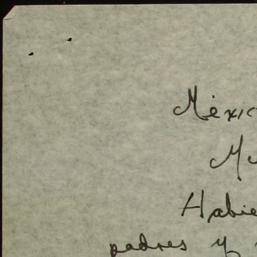 Méxic
Mu
Habie
padres y